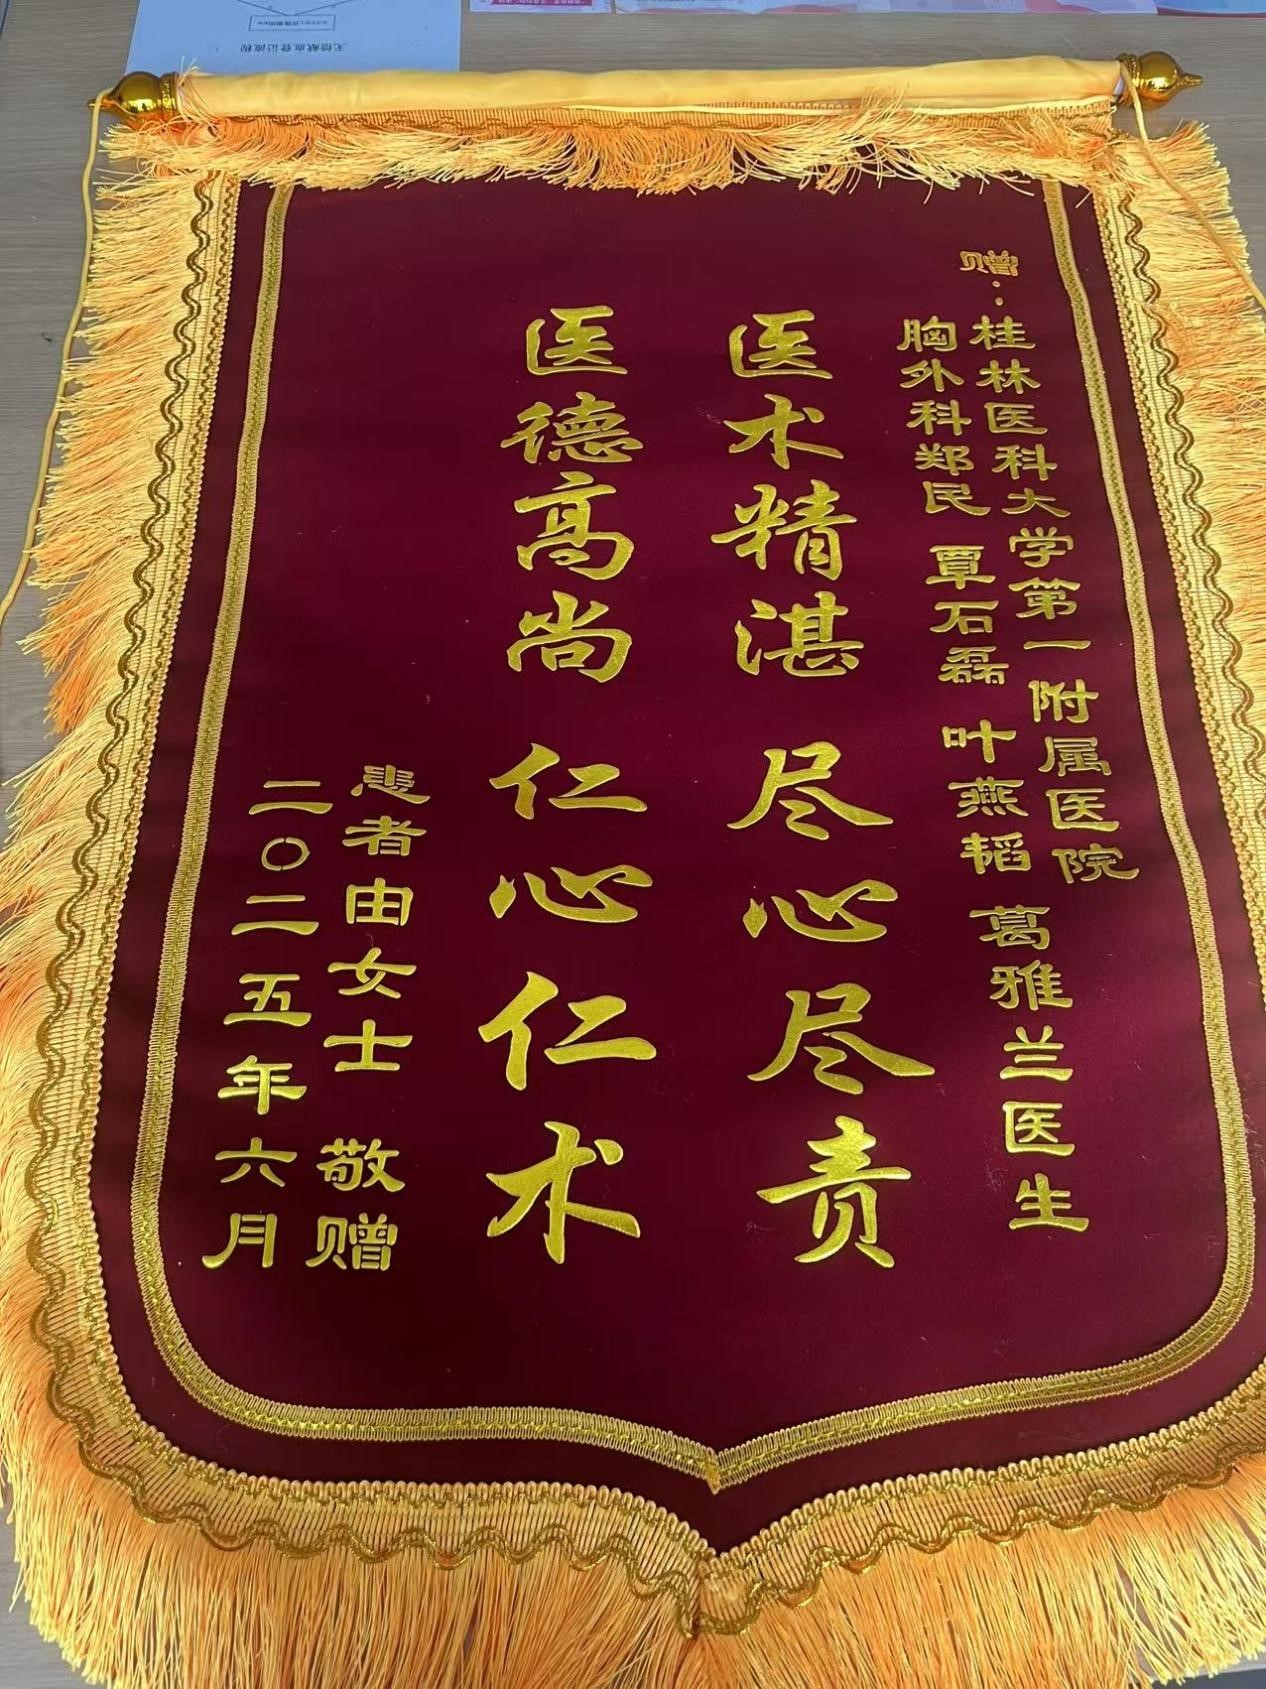 赠：桂林医科大学第一附属医院
胸外科郑民 覃石磊 叶燕韬 葛雅兰医生
医术精湛 尽心尽责
医德高尚 仁心仁术
患者由女士 敬赠
二〇二五年六月
无偿献血登记流程